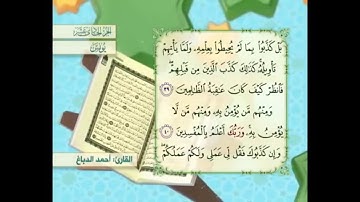 الجزء الحادي عشر
يونس
بَلْ كَذَّبُوا۟ بِمَا لَمْ يُحِيطُوا۟ بِعِلْمِهِۦ وَلَمَّا يَأْتِهِمْ
تَأْوِيلُهُۥ كَذَٰلِكَ كَذَّبَ ٱلَّذِينَ مِن قَبْلِهِمْ
فَٱنظُرْ كَيْفَ كَانَ عَٰقِبَةُ ٱلظَّٰلِمِينَ ٣٩
وَمِنْهُم مَّن يُؤْمِنُ بِهِۦ وَمِنْهُم مَّن لَّا
يُؤْمِنُ بِهِۦ وَرَبُّكَ أَعْلَمُ بِٱلْمُفْسِدِينَ ٤٠
وَإِن كَذَّبُوكَ فَقُل لِّى عَمَلِى وَلَكُمْ عَمَلُكُمْ
القارئ: أحمد الدباغ